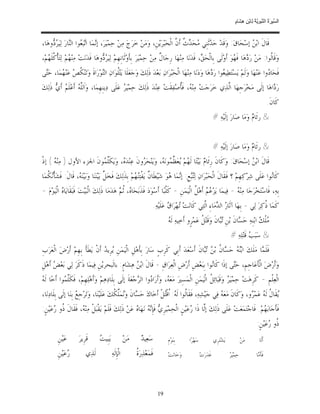 السيرة النبوية لابن هشام
قَالَ ابْنُ إسْحَاقَ: وَقَدْ حَدّثَنِي مُحَدّثٌ أَنّ الْحَبْرَيْنِ، وَمَنْ خَرَجَ مِنْ حِمْيَرَ، إنّمَا اتّبَعُوا النّارَ لِيَرُدّوهَا،
وَقَالُوا: مَنْ رَدّهَا فَهُوَ أَوْلَى بِالْحَقّ، فَدَنَا مِنْهَا رِجَالٌ مِنْ حِمْيَرَ بِأَوْثَانِهِمْ لِيَرُدّوهَا فَدَنَتْ مِنْهُمْ لِتَأْكُلَهُمْ،
فَحَادُوا عَنْهَا وَلَمْ يَسْتَطِيعُوا رَدّهَا وَدَنَا مِنْهَا الْحَبْرَانِ بَعْدَ ذَلِكَ وَجَعَلَا يَتْلُوَانِ التّوْرَاةَ وَتَنْكُصُ عَنْهُمَا، حَتّى
رَدّاهَا إلَى مَخْرَجِهَا الّذِي خَرَجَتْ مِنْهُ، فَأَصْفَقَتْ عِنْدَ ذَلِكَ حِمْيَرُ عَلَى دِينِهِمَا، وَاَللّهُ أَعْلَمُ أَيّ ذَلِكَ
كَانَ
رِئَامٌ وَمَا صَارَ إلَيْهِ //
رِئَامٌ وَمَا صَارَ إلَيْهِ //
قَالَ ابْنُ إسْحَاقَ: وَكَانَ رِئَامٌ بَيْتًا لَهُمْ يُعَظّمُونَهُ، وَيَنْحَرُونَ عِنْدَهُ، وَيُكَلّمُونَ الجزء الأول [ مِنْهُ ] إذْ
كَانُوا عَلَى شِرْكِهِمْ ؟ فَقَالَ الْحَبْرَانِ لِتُبّعٍ: إنّمَا هُوَ شَيْطَانٌ يَفْتِنُهُمْ بِذَلِكَ فَخَلّ بَيْنَنَا وَبَيْنَهُ، قَالَ: فَشَأْنُكُمَا
بِهِ، فَاسْتَخْرَجَا مِنْهُ - فِيمَا يَزْعُمُ أَهْلُ الْيَمَنِ - كَلْبًا أَسْوَدَ فَذَبَحَاهُ، ثُمّ هَدَمَا ذَلِكَ الْبَيْتَ فَبَقَايَاهُ الْيَوْمَ -
كَمَا ذُكِرَ لِي - بِهَا آثَارُ الدّمَاءِ الّتِي كَانَتْ تُهْرَاقُ عَلَيْهِ
مُلْكُ ابْنِهِ حَسّانَ بْنِ تُبّانَ وَقَتْلُ عَمْرٍو أَخِيهِ لَهُ
سَبَبُ قَتْلِهِ //
فَلَمّا مَلَكَ ابْنُهُ حَسّانُ بْنُ تُبّانَ أَسْعَدَ أَبِي كَرِبٍ سَارَ بِأَهْلِ الْيَمَنِ يُرِيدُ أَنْ يَطَأَ بِهِمْ أَرْضَ الْعَرَبِ
وَأَرْضَ الْأَعَاجِمِ، حَتّى إذَا كَانُوا بِبَعْضِ أَرْضِ الْعِرَاقِ - قَالَ ابْنُ هِشَامٍ: بِالْبَحْرَيْنِ فِيمَا ذَكَرَ لِي بَعْضُ أَهْلِ
الْعِلْمِ - كَرِهَتْ حِمْيَرُ وَقَبَائِلُ الْيَمَنِ الْمَسِيرَ مَعَهُ، وَأَرَادُوا الرّجْعَةَ إلَى بِلَادِهِمْ وَأَهْلِيهِمْ، فَكَلّمُوا أَخًا لَهُ
يُقَالُ لَهُ عَمْرٌو، وَكَانَ مَعَهُ فِي جَيْشِهِ، فَقَالُوا لَهُ: اُقْتُلْ أَخَاكَ حَسّانَ وَنُمَلّكُكَ عَلَيْنَا، وَتَرْجِعُ بِنَا إلَى بِلَادِنَا،
فَأَجَابَهُمْ. فَاجْتَمَعَتْ عَلَى ذَلِكَ إلّا ذَا رُعَيْنٍ الْحِمْيَرِيّ فَإِنّهُ نَهَاهُ عَنْ ذَلِكَ فَلَمْ يَقْبَلْ مِنْهُ، فَقَالَ ذُو رُعَيْنٍ
ذُو رُعَيْنٍ
أَلَا مَنْ يَشْتَرِي سَهَرًا بِنَوْمٍ سَعِيدٌ مَنْ يَبِيتُ قَرِيرَ عَيْنِ
فَأَمّا حِمْيَرٌ غَدَرَتْ وَخَانَتْ فَمَعْذِرَةُ الْإِلَهِ لِذِي رُعَيْنِ
19